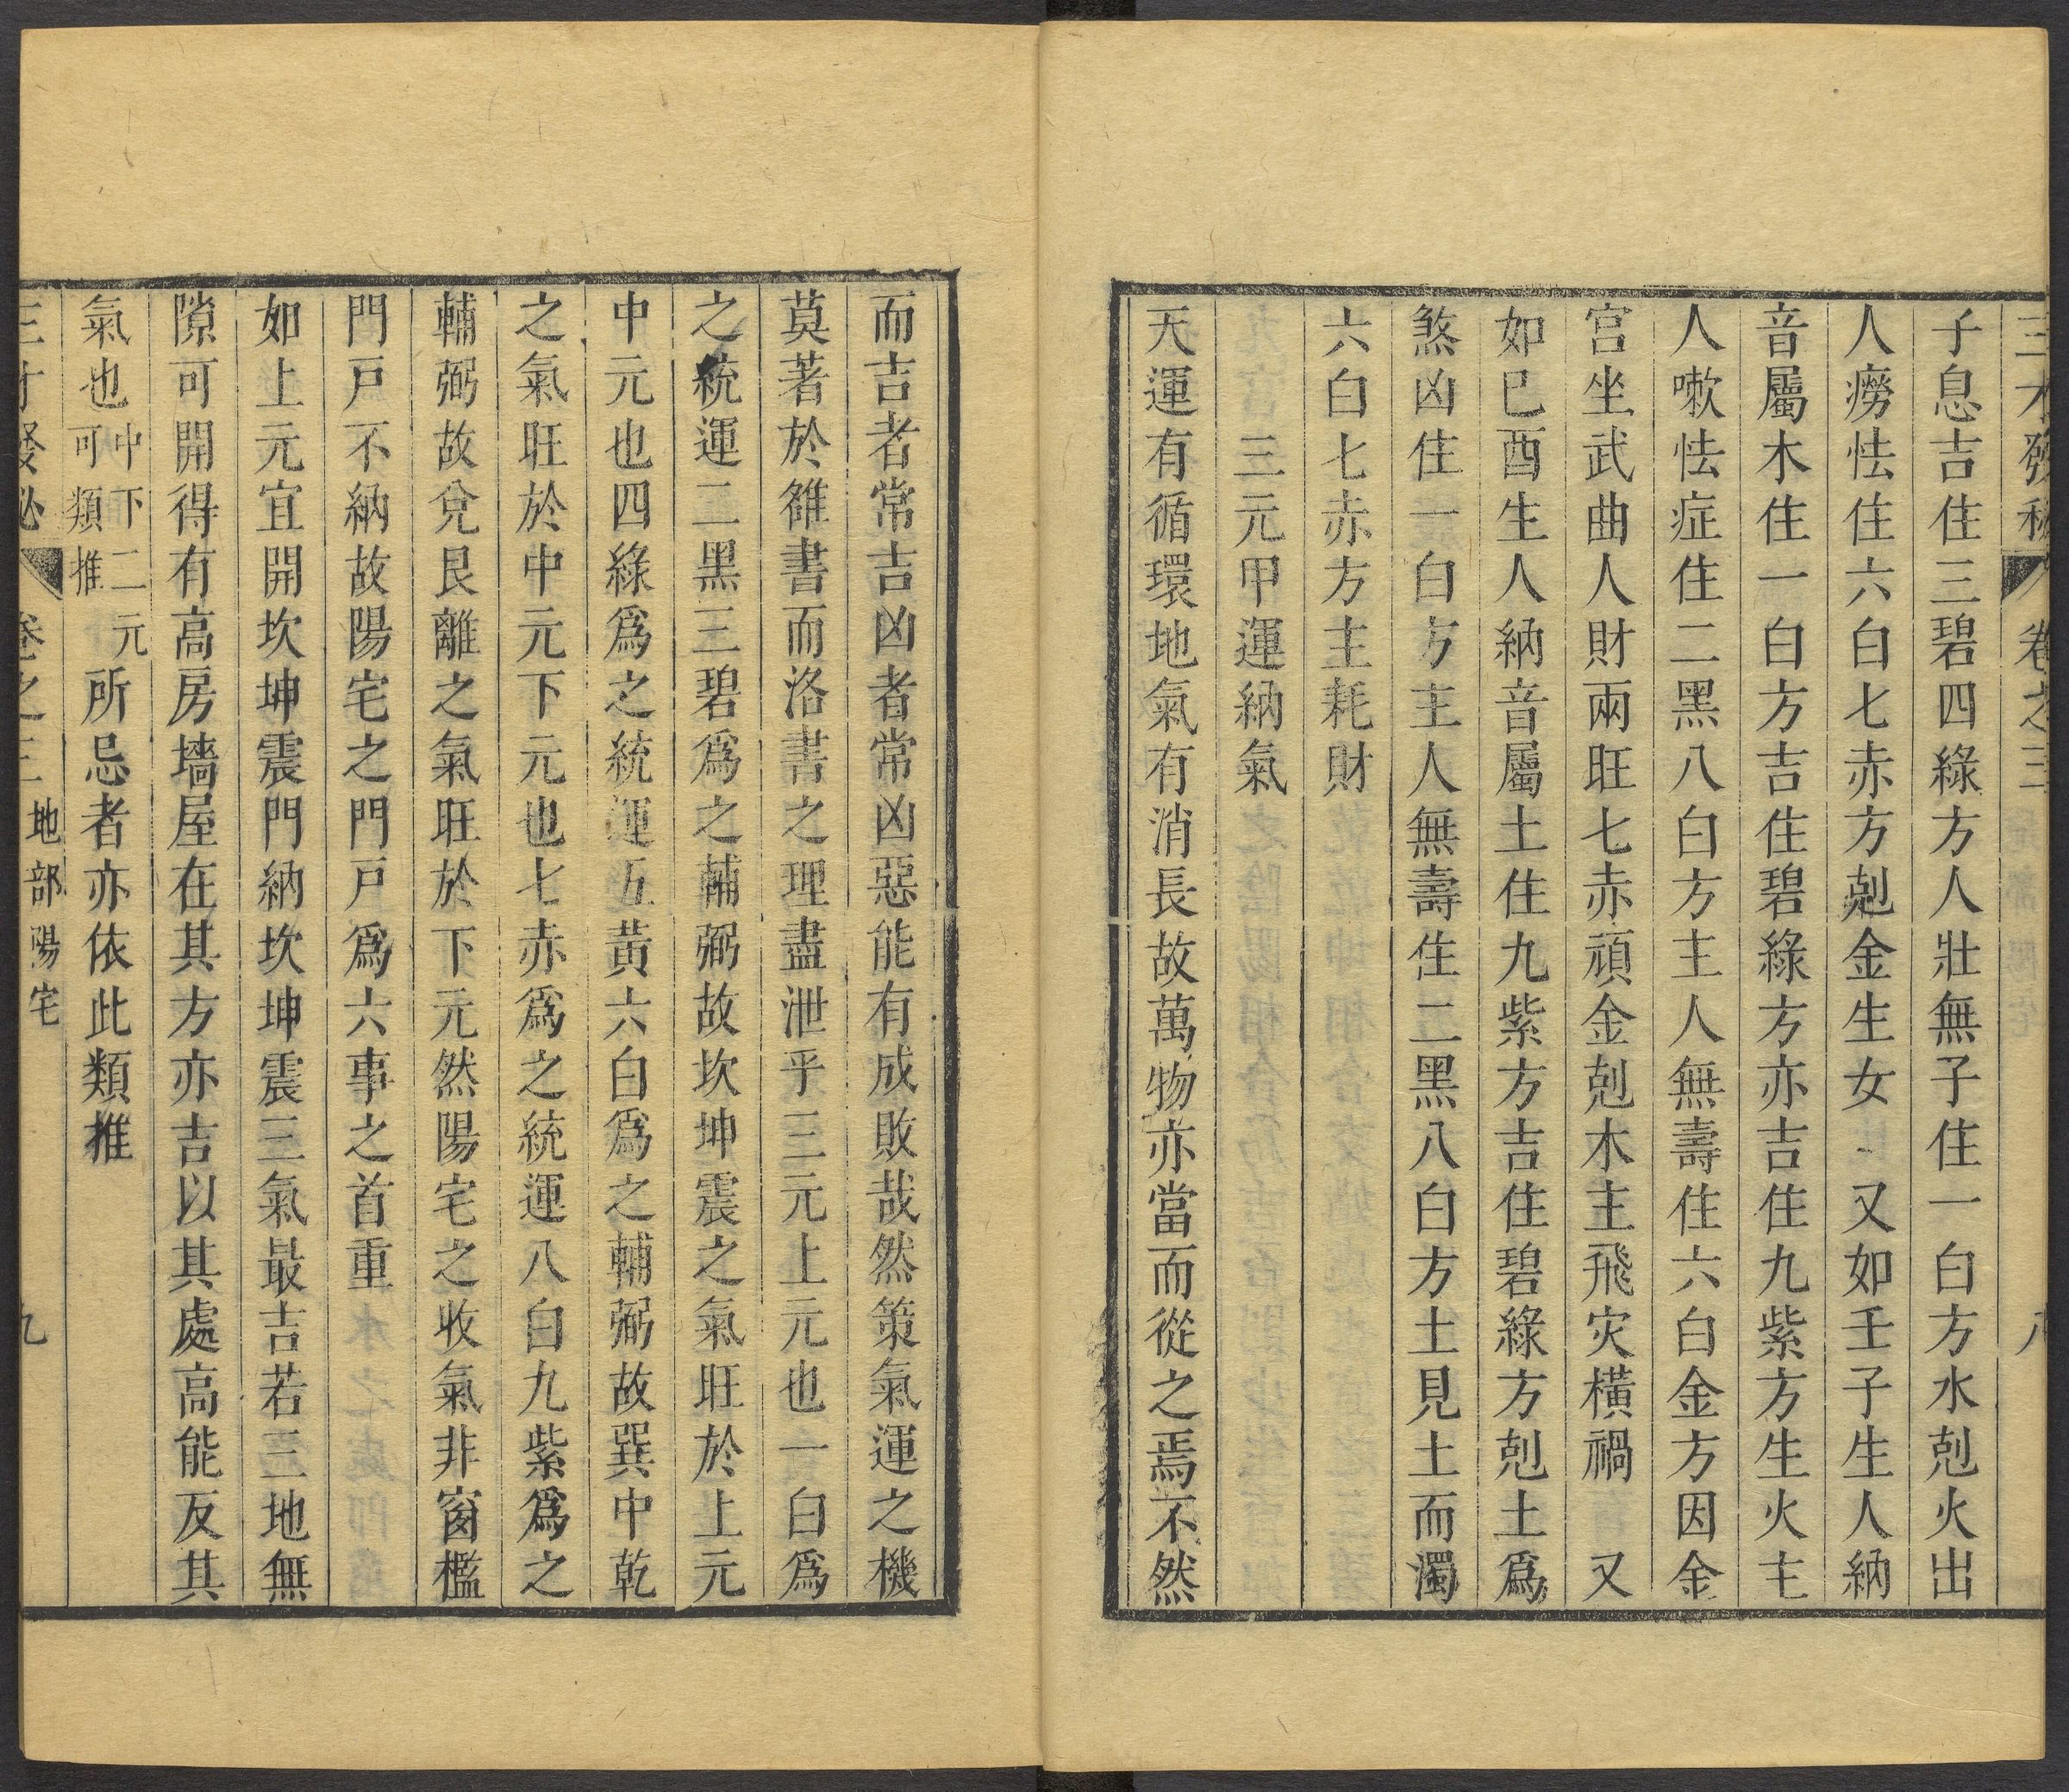 三才發秘 卷之三 八
子息吉住三碧四綠方人壯無子住一白方水剋火出
人癆怯住六白七赤方剋金生女、又如壬子生人納
音屬木住一白方吉住碧綠方亦吉住九紫方生火主
人嗽怯症住二黑八白方主人無壽住六白金方因金
宮坐武曲人財兩旺七赤頑金剋木主飛灾橫禍 又
如巳酉生人納音屬土住九紫方吉住碧綠方剋土爲
煞凶住一白方主人無壽住二黑八白方土見土而濁
六白七赤方主耗財
三元甲運納氣
天運有循環地氣有消長故萬物亦當而從之焉不然
而吉者常吉凶者常凶惡能有成敗哉然策氣運之機
莫著於雒書而洛書之理盡泄乎三元上元也一白爲
之統運二黑三碧爲之輔弼故坎坤震之氣旺於上元
中元也四綠爲之統運五黃六白爲之輔弼故巽中乾
之氣旺於中元下元也七赤爲之統運八白九紫爲之
輔弼故兌艮離之氣旺於下元然陽宅之收氣非窗檻
門戸不納故陽宅之門戸爲六事之首重
如上元宜開坎坤震門納坎坤震三氣最吉若三地無
隙可開得有高房墻屋在其方亦吉以其處高能反其
氣也中下二元可類推所忌者亦依此類推
三才發秘 卷之三 地部陽宅 九